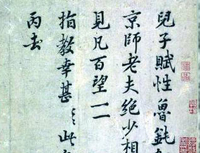 兒子賦性魯鈍
京師老夫絶少相
見凡百望一一
指教幸甚
丙去